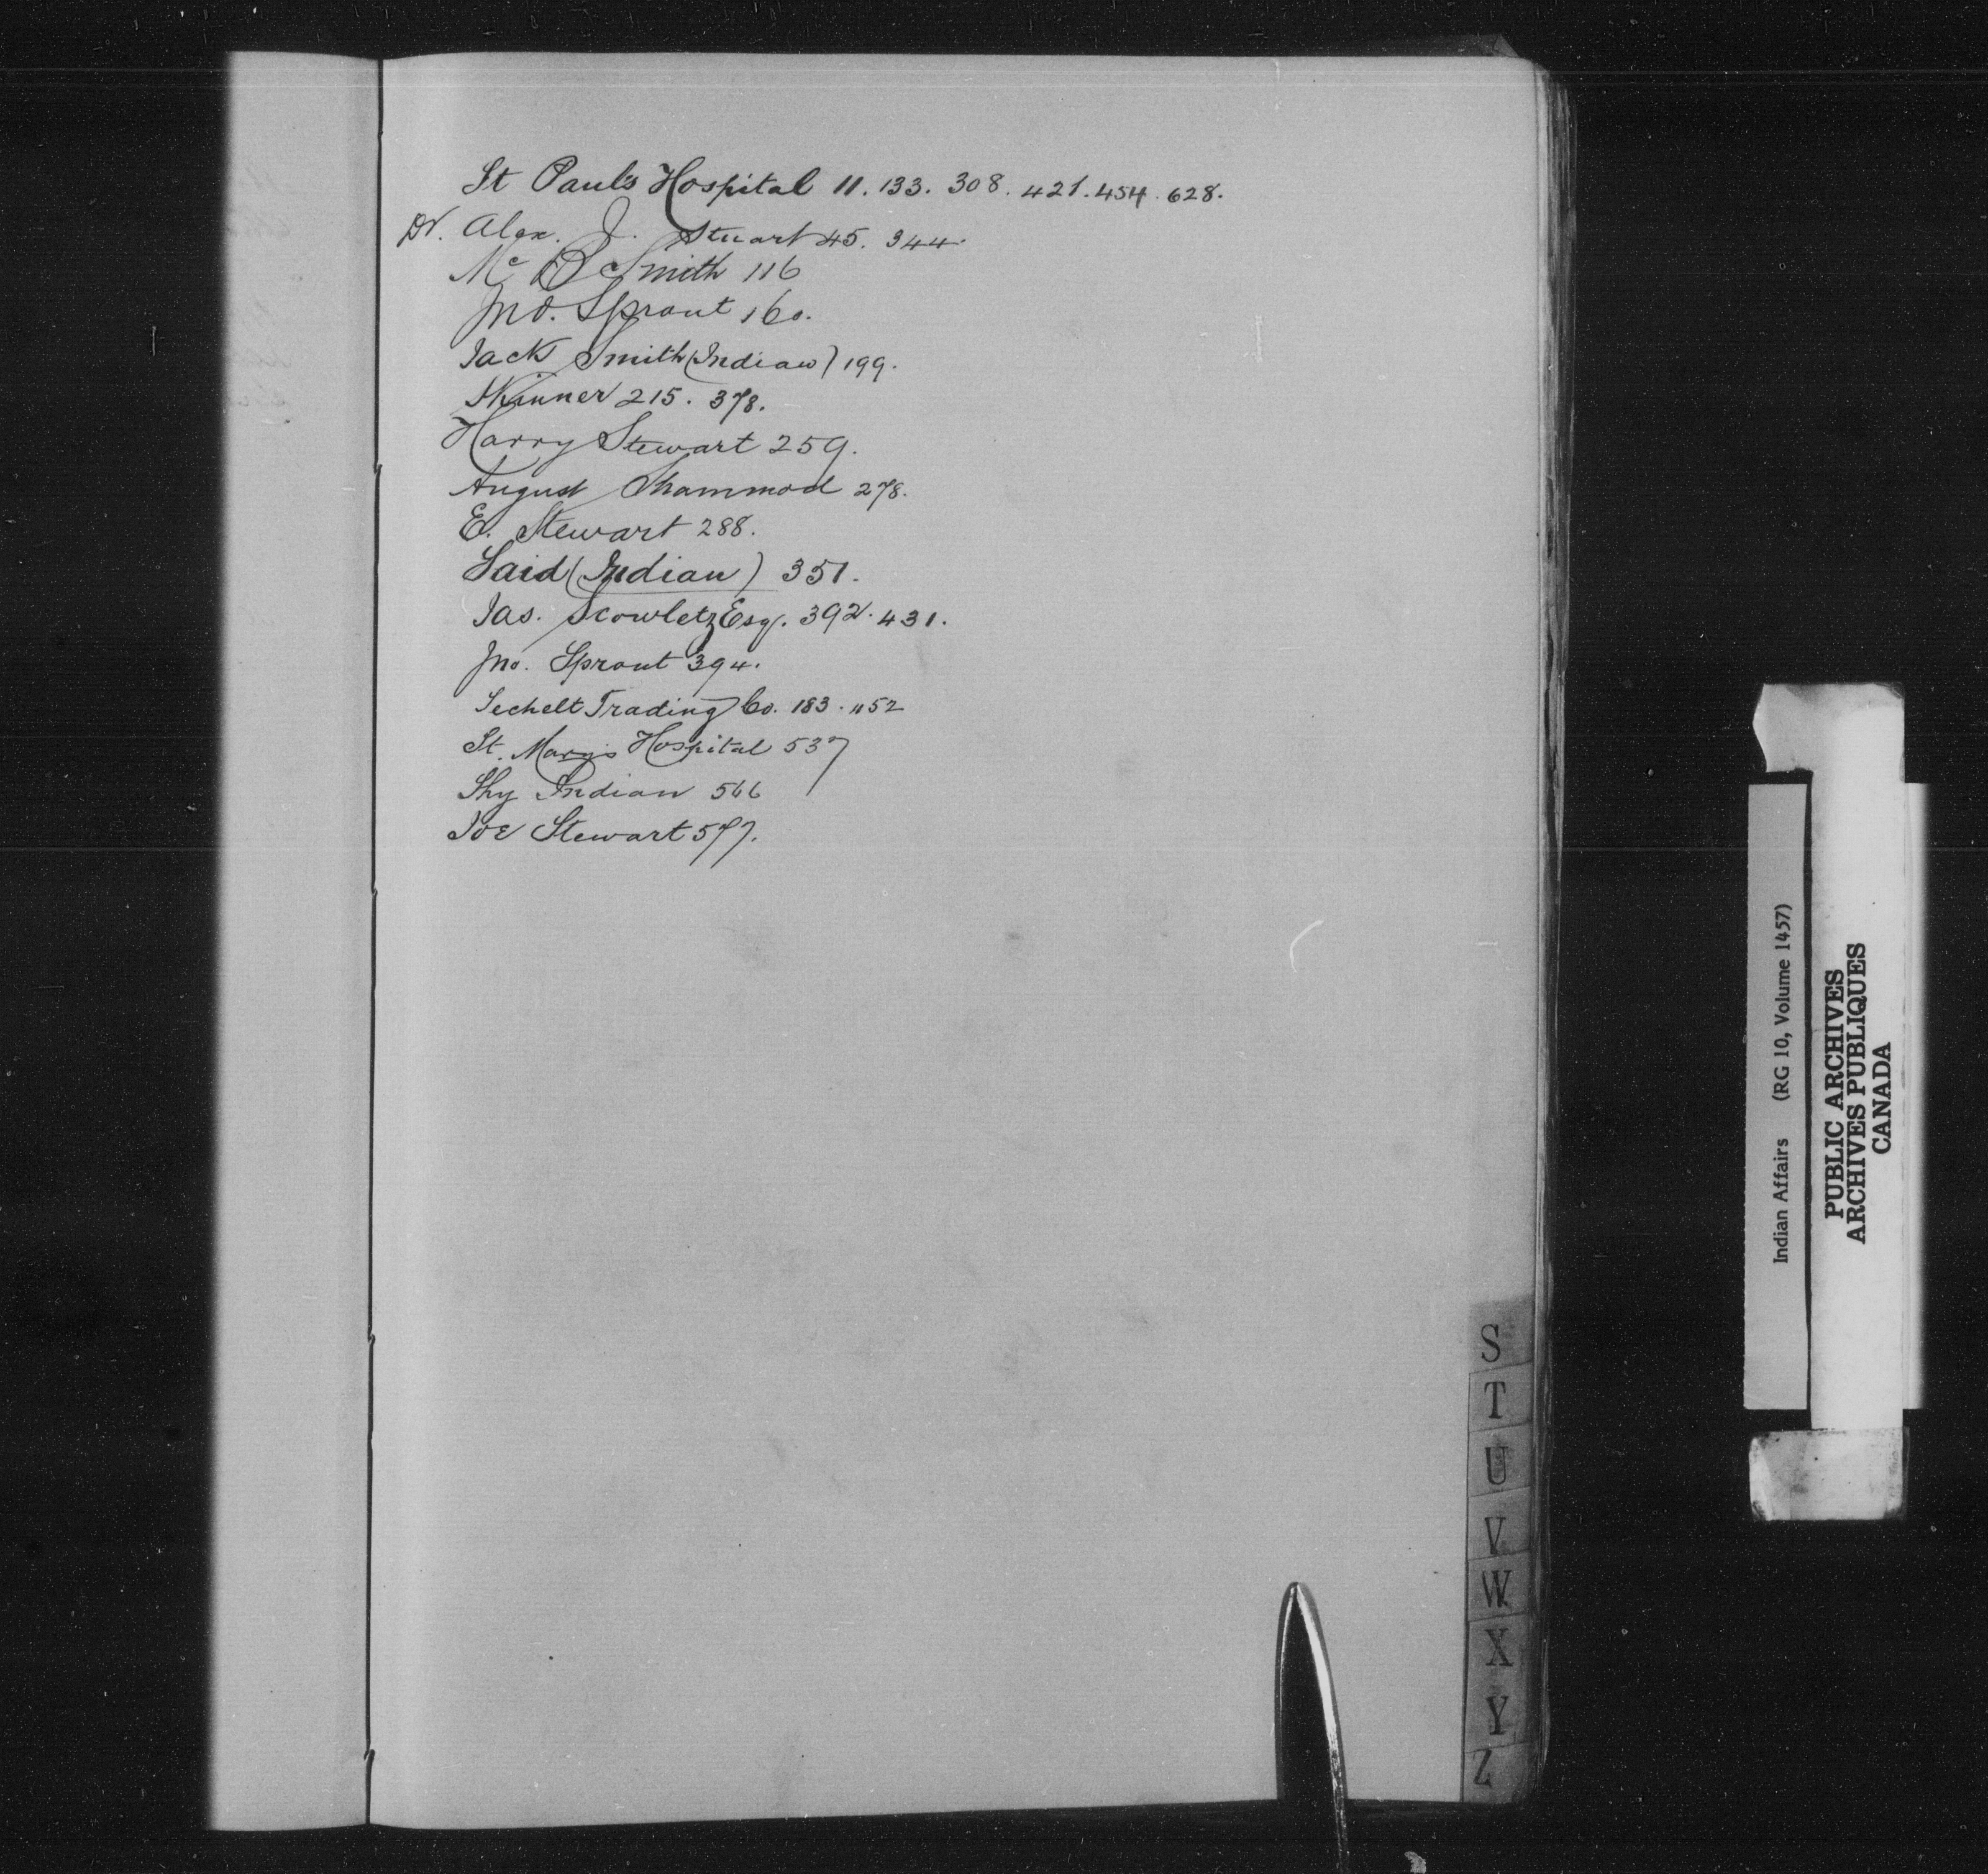 St Paul's Hospital 11. 133. 308. 421. 454. 628.
Dr. Alex. J. Stuart 45. 344.
Mc B Smith 116
Jno. Sprout 160.
Jack Smith (Indian) 199.
Skinner 215. 378.
Harry Stewart 259.
August Shammod 278.
E. Stewart 288.
Said (Indian) 351.
Jas. Scowletz Esq. 392. 431.
Jno. Sprout 394.
Sechelt Trading Co. 183. 452
St. Mary's Hospital 537
Shy Indian 566
Joe Stewart 577.
S
T
U
V
W
X
Y
Z
Indian Affairs (RG 10, Volume 1457)
PUBLIC ARCHIVES
ARCHIVES PUBLIQUES
CANADA